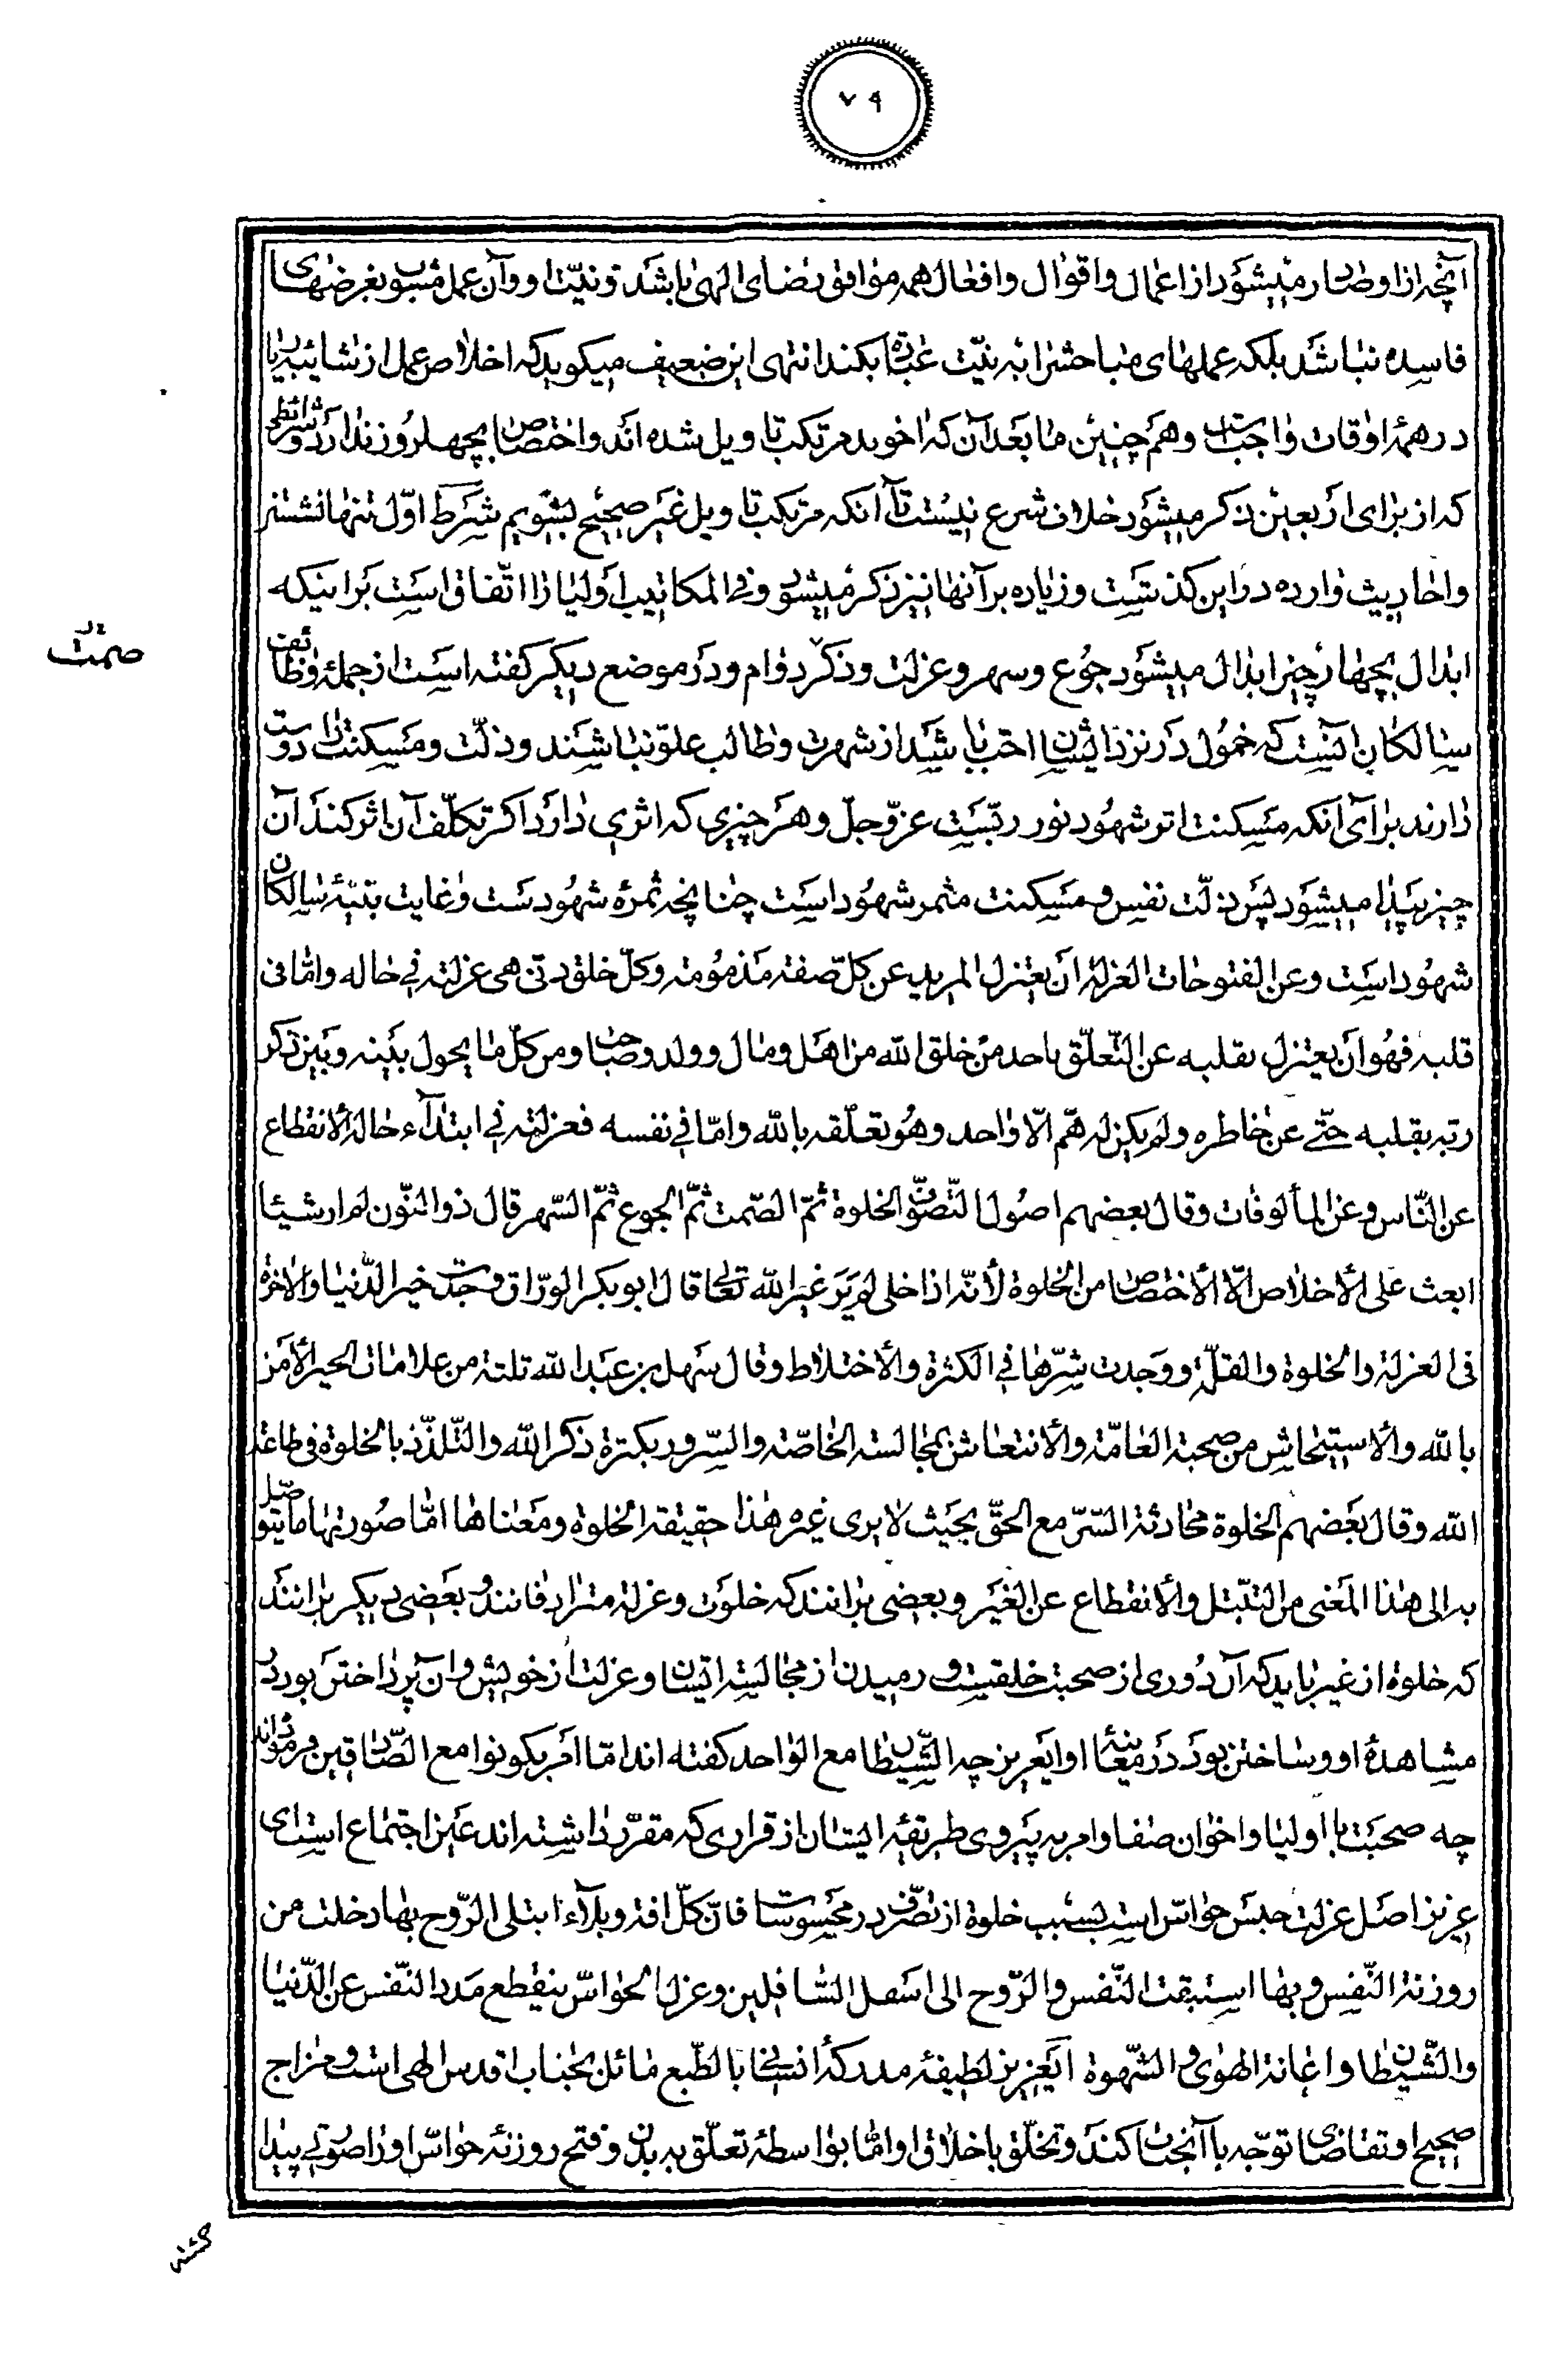 ۷۹
آنچه از او صادر میشود از اعمال و اقوال و افعال همه موافق رضای الهی باشد و نیّت او و آن عمل مشوب بغرضهای
فاسده نباشد بلکه عملهای مباحش را به نیّت عبادة بکند انتهی این ضعیف میکوید که اخلاص عمل از شایبه ریا
در همهٔ اوقات واجبست و هم چنین ما بعد آن که اخوبد مرتکب تاویل شده اند و اختصاص بچهلروز ندارد و شرائطی
که از برای اربعین ذکر میشود خلاف شرع نیست تا آنکه مرتکب تاویل غیر صحیح بشویم شرط اوّل تنها نشستن
و احادیث وارده در این کذشت و زیاده بر آنها نیز ذکر میشود و فی المکاتیب اولیا را اتّفاق است بر اینکه
ابدال بچهار چیز ابدال میشود جوع و سهر و عزلت و ذکر دوام و در موضع دیکر کفته است از جملهٔ وظائف
صمت
سالکان اینست که خمول در نزد ایشان احبّ باشد از شهرت و طالب علوّ نباشند و ذلّت و مسکنت را دوست
دارند برای آنکه مسکنت اثر شهود نور ربّست عزّ و جلّ و هر چیزی که اثری دارد اکر تکلّف آن اثر کند آن
چیز پیدا میشود پس ذلّت نفس و مسکنت مثمر شهود است چنانچه ثمرهٔ شهود ست و غایت بنیهٔ سالکان
شهود است و عن الفتوحات العزلة ان یعتزل المرید عن کلّ صفة مذمومة و کلّ خلق دنّی هی عزلته فی حاله و امّا فی
قلبه فهو ان یعتزل بقلبه عن التّعلّق باحد من خلق الله من اهل و مال و ولد و صاحب و من کلّ ما یحول بینه و بین ذکر
ربّه بقلبه حتّی عن خاطره و لم یکن له همّ الّا واحد و هو تعلّقه بالله و امّا فی نفسه فعزلته فی ابتدآء حاله الانقطاع
عن النّاس و عن المألوفات و قال بعضهم اصول التّصوّف الخلوة ثمّ الصّمت ثمّ الجوع ثمّ السّهر قال ذوالنّون لم ار شیئا
ابعث علی الأخلاص الّا الأختصاص من الخلوة لأنّه اذا خلی لم یر غیر الله تعالی قال ابو بکر الورّاق وجدت خیر الدّنیا و الاخرة
فی العزلة و الخلوة و القلّة و وجدت شرّها فی الکثرة و الأختلاط و قال سهل بن عبد الله ثلثة من علامات الخیر الأمن
بالله و الاستیحاش من صحبة العامّة و الأنتعاش بمجالسة الخاصّة و السّرور بکثرة ذکر الله و التّلذّذ بالخلوة فی طاعة
الله و قال بعضهم الخلوة محادثة السّرّ مع الحقّ بحیث لا یری غیره هذا حقیقة الخلوة و معناها امّا صورتها ما یتوصّل
به الی هذا المعنی من التبتّل و الأنقطاع عن الغیر و بعضی برانند که خلوت و عزلة مترادفانند و بعضی دیکر برانند
که خلوة از غیر باید که آن دوری از صحبت خلقیست و رمیدن از مجالسه ایشان و عزلت از خویش و ان پرداختن بود در
مشاهدهٔ او و ساختن بود در معاینهٔ او ایعزیز چه الشّیطان مع الواحد کفته اند امّا امر بکونوا مع الصّادقین فرموده‌اند
چه صحبت با اولیا و اخوان صفا و امر به پیروی طریقهٔ ایشان از قراری که مقرّر داشته اند عین اجتماع است ای
عزیز اصل عزلت حبس حواسّ است بسبب خلوة از تصّرف در محسوسات فانّ کلّ افة و بلآء ابتلی الرّوح بها دخلت من
روزنة النّفس و بها استبقت النّفس و الرّوح الی اسفل السّافلین و عزل الحواسّ ینقطع مدد النّفس عن الدّنیا
و الشّیطان و اعانة الهوی و الشّهوة ایعزیز لطیفهٔ مدرکهٔ انسانی بالطّبع مائل بجناب اقدس الهی است و مزاج
صحیح او تقاضای توجّه با آنجناب کند و تخلّق باخلاق او و امّا بواسطهٔ تعلّق به بدن و فتح روزنهٔ حواسّ او را صورتی پیدا
کشته